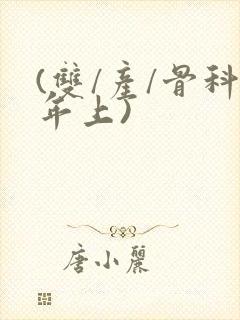 (雙/產/骨科/
年上)
唐小麗